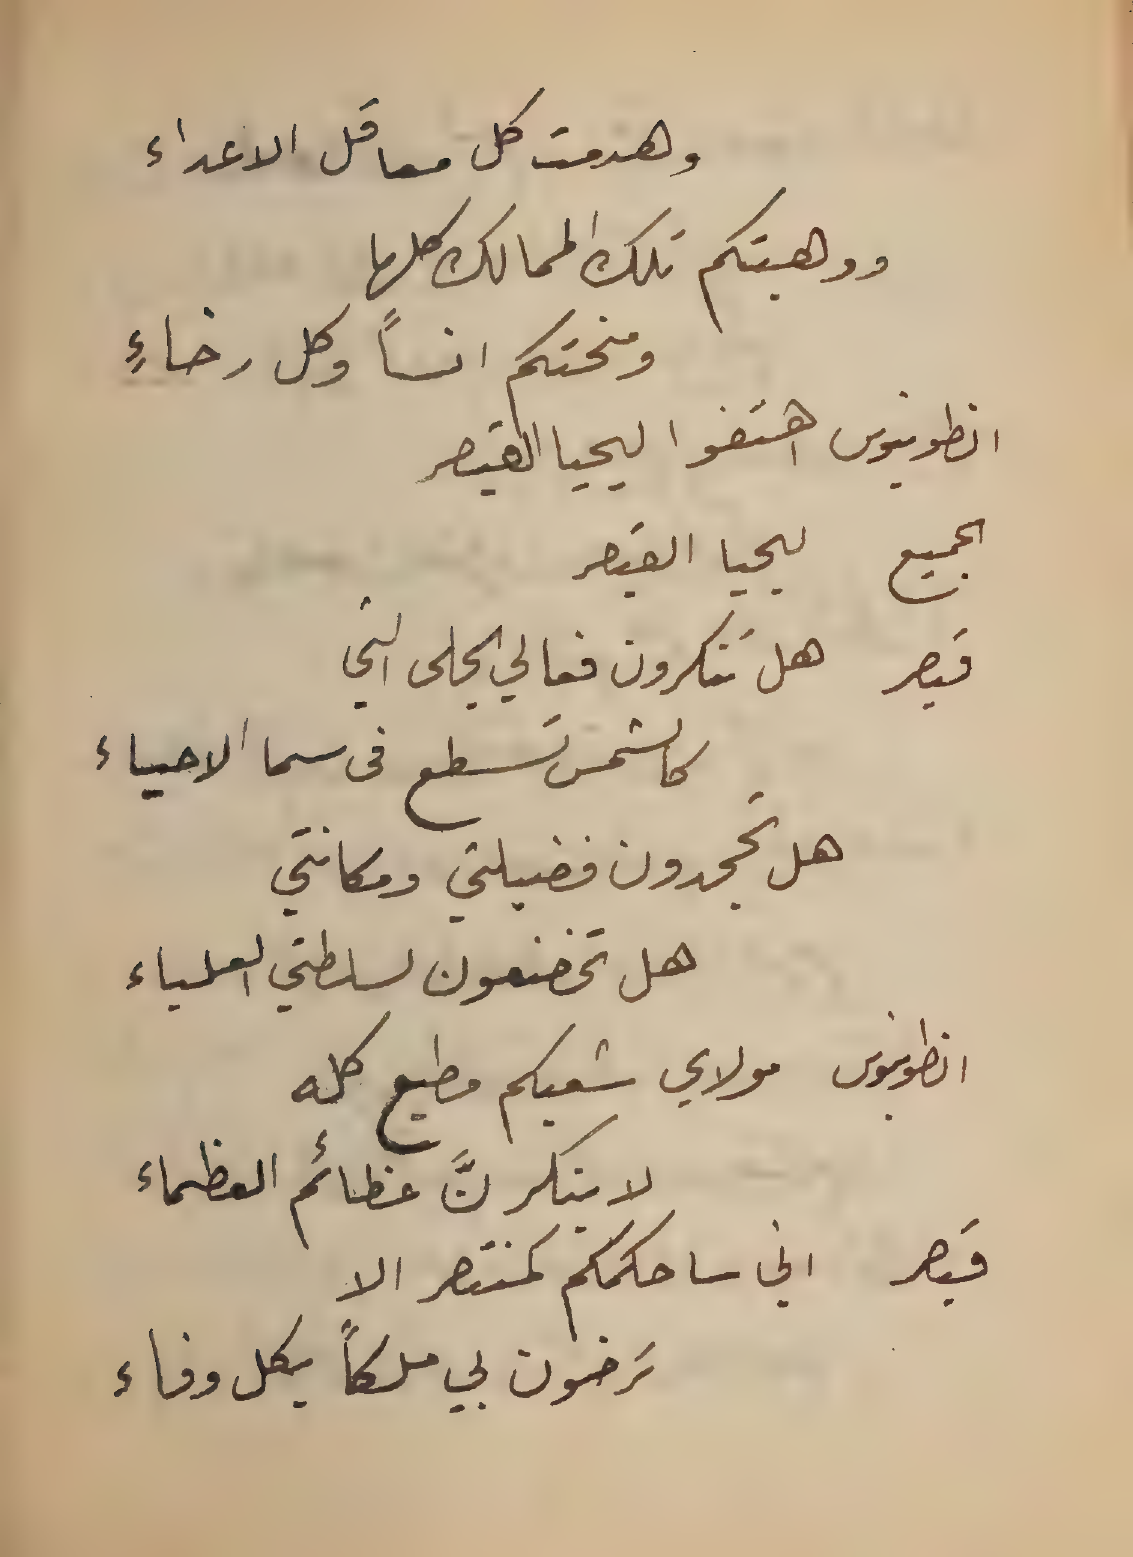 وهدمت كل معاقل الاعداء
ووهبتكم تلك الممالك كلها
ومنحتكم انساً وكل رخاءِ
انطونيوس هتفوا ليحيا القيصر
الجميع ليحيا القيصر
قيصر هل تنكرون فعالي الجلى التي
كالشمس تسطع فى سما الاحياء
هل تجحدون فضيلتي ومكانتي
هل تخضعون لسلطتي العلياء
انطونيوس مولاي شعبكم مطيع كله
لا ينكرنَّ عظائم العظماء
قيصر اني ساحكمكم كمنتصر الا
ترضون بي ملكاً بكل وفاء